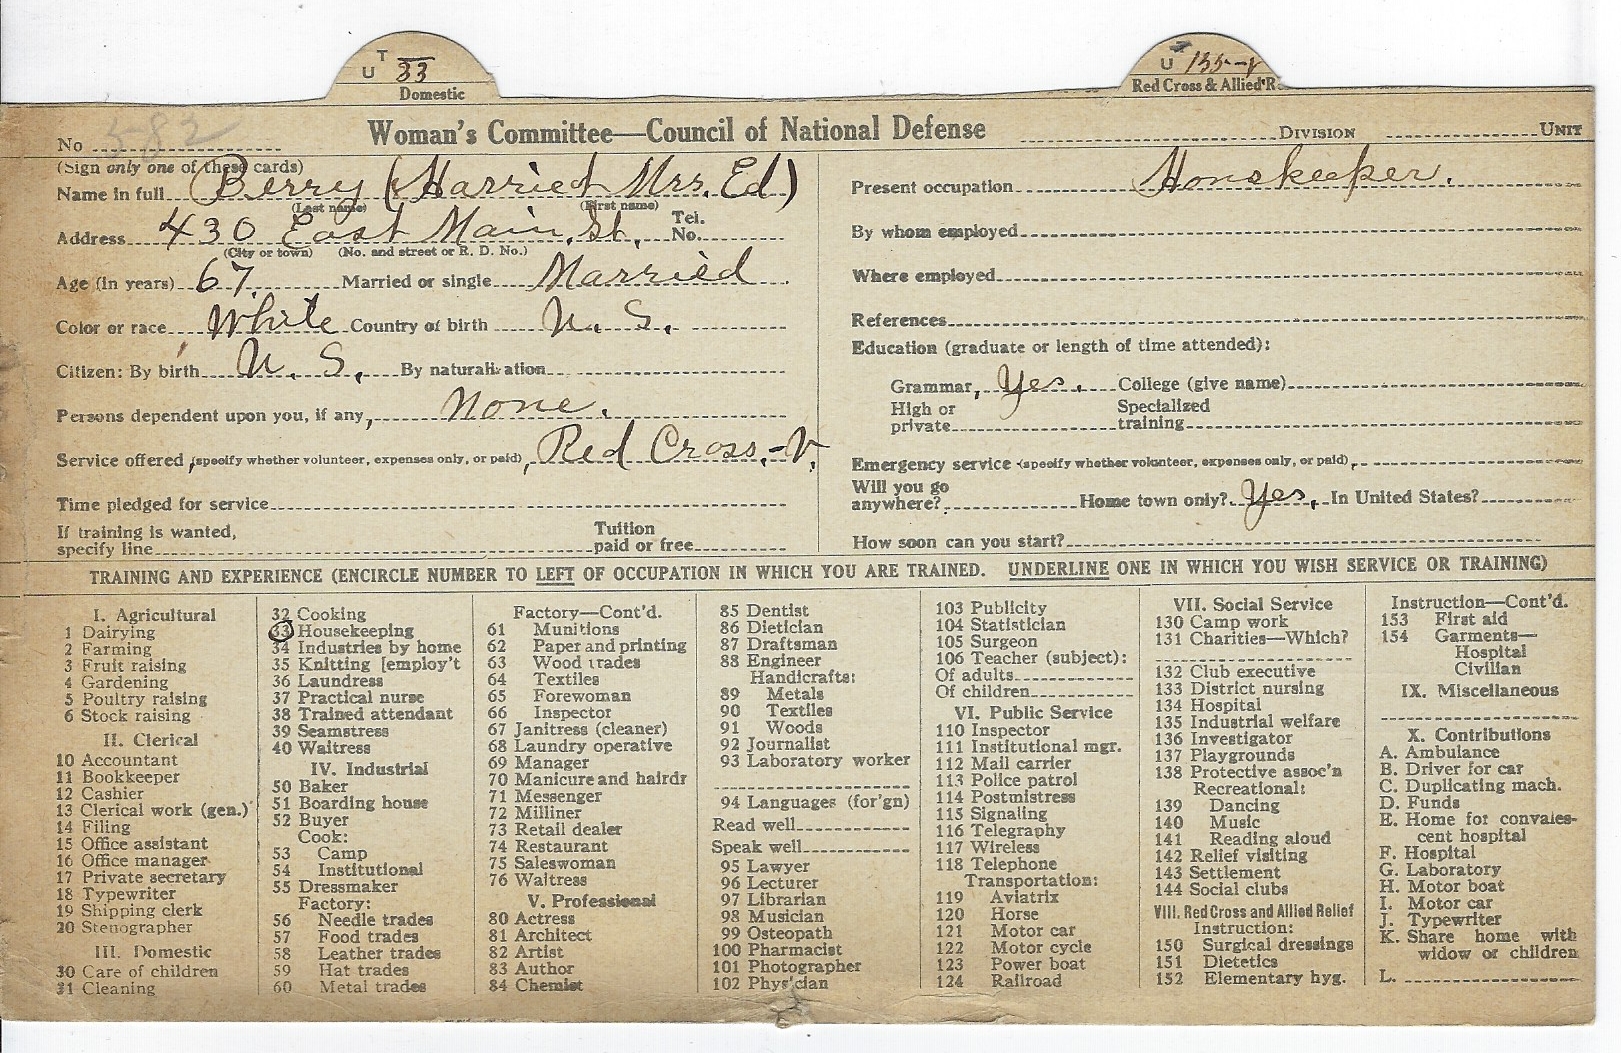 T
U 33
Domestic
U 155-V
Red Cross & Allied R
No 582
Woman's Committee—Council of National Defense
DIVISION UNIT
(Sign only one of these cards)
Name in full Berry (Harriet Mrs. Ed)
(Last name) (First name)
Address 430 East Main St. Tel. No.
(City or town) (No. and street or R. D. No.)
Age (in years) 67. Married or single Married
Color or race White Country of birth U. S.
Citizen: By birth U. S. By naturalization
Persons dependent upon you, if any, None.
Service offered (specify whether volunteer, expenses only, or paid), Red Cross.-V.
Time pledged for service
If training is wanted, specify line Tuition paid or free
Present occupation Houskeeper.
By whom employed
Where employed
References
Education (graduate or length of time attended):
Grammar, Yes. College (give name)
High or private Specialized training
Emergency service (specify whether volunteer, expenses only, or paid),
Will you go anywhere? Home town only? Yes. In United States?
How soon can you start?
TRAINING AND EXPERIENCE (ENCIRCLE NUMBER TO LEFT OF OCCUPATION IN WHICH YOU ARE TRAINED. UNDERLINE ONE IN WHICH YOU WISH SERVICE OR TRAINING)
I. Agricultural
1 Dairying
2 Farming
3 Fruit raising
4 Gardening
5 Poultry raising
6 Stock raising
II. Clerical
10 Accountant
11 Bookkeeper
12 Cashier
13 Clerical work (gen.)
14 Filing
15 Office assistant
16 Office manager
17 Private secretary
18 Typewriter
19 Shipping clerk
20 Stenographer
III. Domestic
30 Care of children
31 Cleaning
32 Cooking
33 Housekeeping
34 Industries by home
35 Knitting [employ't
36 Laundress
37 Practical nurse
38 Trained attendant
39 Seamstress
40 Waitress
IV. Industrial
50 Baker
51 Boarding house
52 Buyer
Cook:
53 Camp
54 Institutional
55 Dressmaker
Factory:
56 Needle trades
57 Food trades
58 Leather trades
59 Hat trades
60 Metal trades
Factory—Cont'd.
61 Munitions
62 Paper and printing
63 Wood trades
64 Textiles
65 Forewoman
66 Inspector
67 Janitress (cleaner)
68 Laundry operative
69 Manager
70 Manicure and hairdr
71 Messenger
72 Milliner
73 Retail dealer
74 Restaurant
75 Saleswoman
76 Waitress
V. Professional
80 Actress
81 Architect
82 Artist
83 Author
84 Chemist
85 Dentist
86 Dietician
87 Draftsman
88 Engineer
Handicrafts:
89 Metals
90 Textiles
91 Woods
92 Journalist
93 Laboratory worker
94 Languages (for'gn)
Read well
Speak well
95 Lawyer
96 Lecturer
97 Librarian
98 Musician
99 Osteopath
100 Pharmacist
101 Photographer
102 Physician
103 Publicity
104 Statistician
105 Surgeon
106 Teacher (subject):
Of adults
Of children
VI. Public Service
110 Inspector
111 Institutional mgr.
112 Mail carrier
113 Police patrol
114 Postmistress
115 Signaling
116 Telegraphy
117 Wireless
118 Telephone
Transportation:
119 Aviatrix
120 Horse
121 Motor car
122 Motor cycle
123 Power boat
124 Railroad
VII. Social Service
130 Camp work
131 Charities—Which?
132 Club executive
133 District nursing
134 Hospital
135 Industrial welfare
136 Investigator
137 Playgrounds
138 Protective assoc'n
Recreational:
139 Dancing
140 Music
141 Reading aloud
142 Relief visiting
143 Settlement
144 Social clubs
VIII. Red Cross and Allied Relief
Instruction:
150 Surgical dressings
151 Dietetics
152 Elementary hyg.
Instruction—Cont'd.
153 First aid
154 Garments—
Hospital
Civilian
IX. Miscellaneous
X. Contributions
A. Ambulance
B. Driver for car
C. Duplicating mach.
D. Funds
E. Home for convales-
cent hospital
F. Hospital
G. Laboratory
H. Motor boat
I. Motor car
J. Typewriter
K. Share home with
widow or children
L.